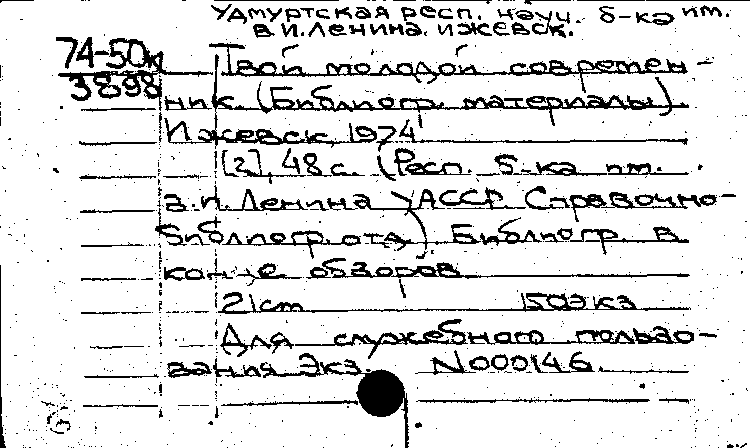 Удмуртская респ. науч. б-ка им.
В.И.Ленина. Ижевск.
74-50к
3898
Твой молодой современ-
ник. (Библиогр. материалы).
Ижевск, 1974.
[2], 48 с. (Респ. б-ка им.
В.И. Ленина УАССР. Справочно-
библиогр. отд). Библиогр. в
конце обзоров
21см 150экз
Для служебного пользо-
вания Экз. N000146.